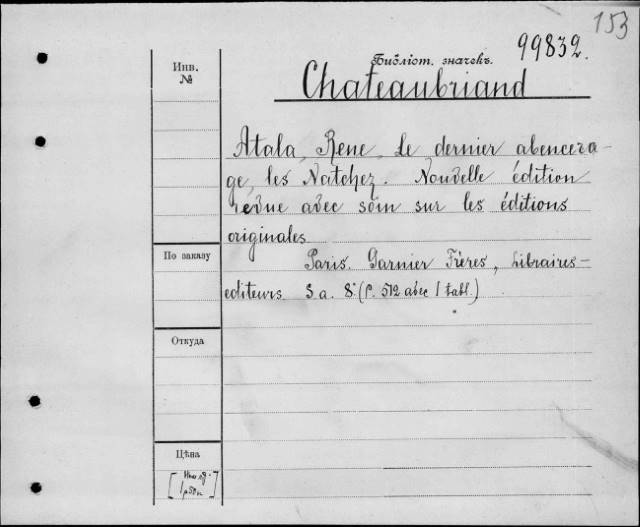 153
99832.
Библіот. значекъ.
Инв.
№
Chateaubriand
Atala, Rene, Le dernier abencera-
ge, les Natchez. Nouvelle édition
revue avec soin sur les éditions
originales
По заказу
Paris. Garnier Frères, Libraires-
editeurs. S. a. 8º (P. 512 avec 1 tabl.)
Откуда
Цѣна